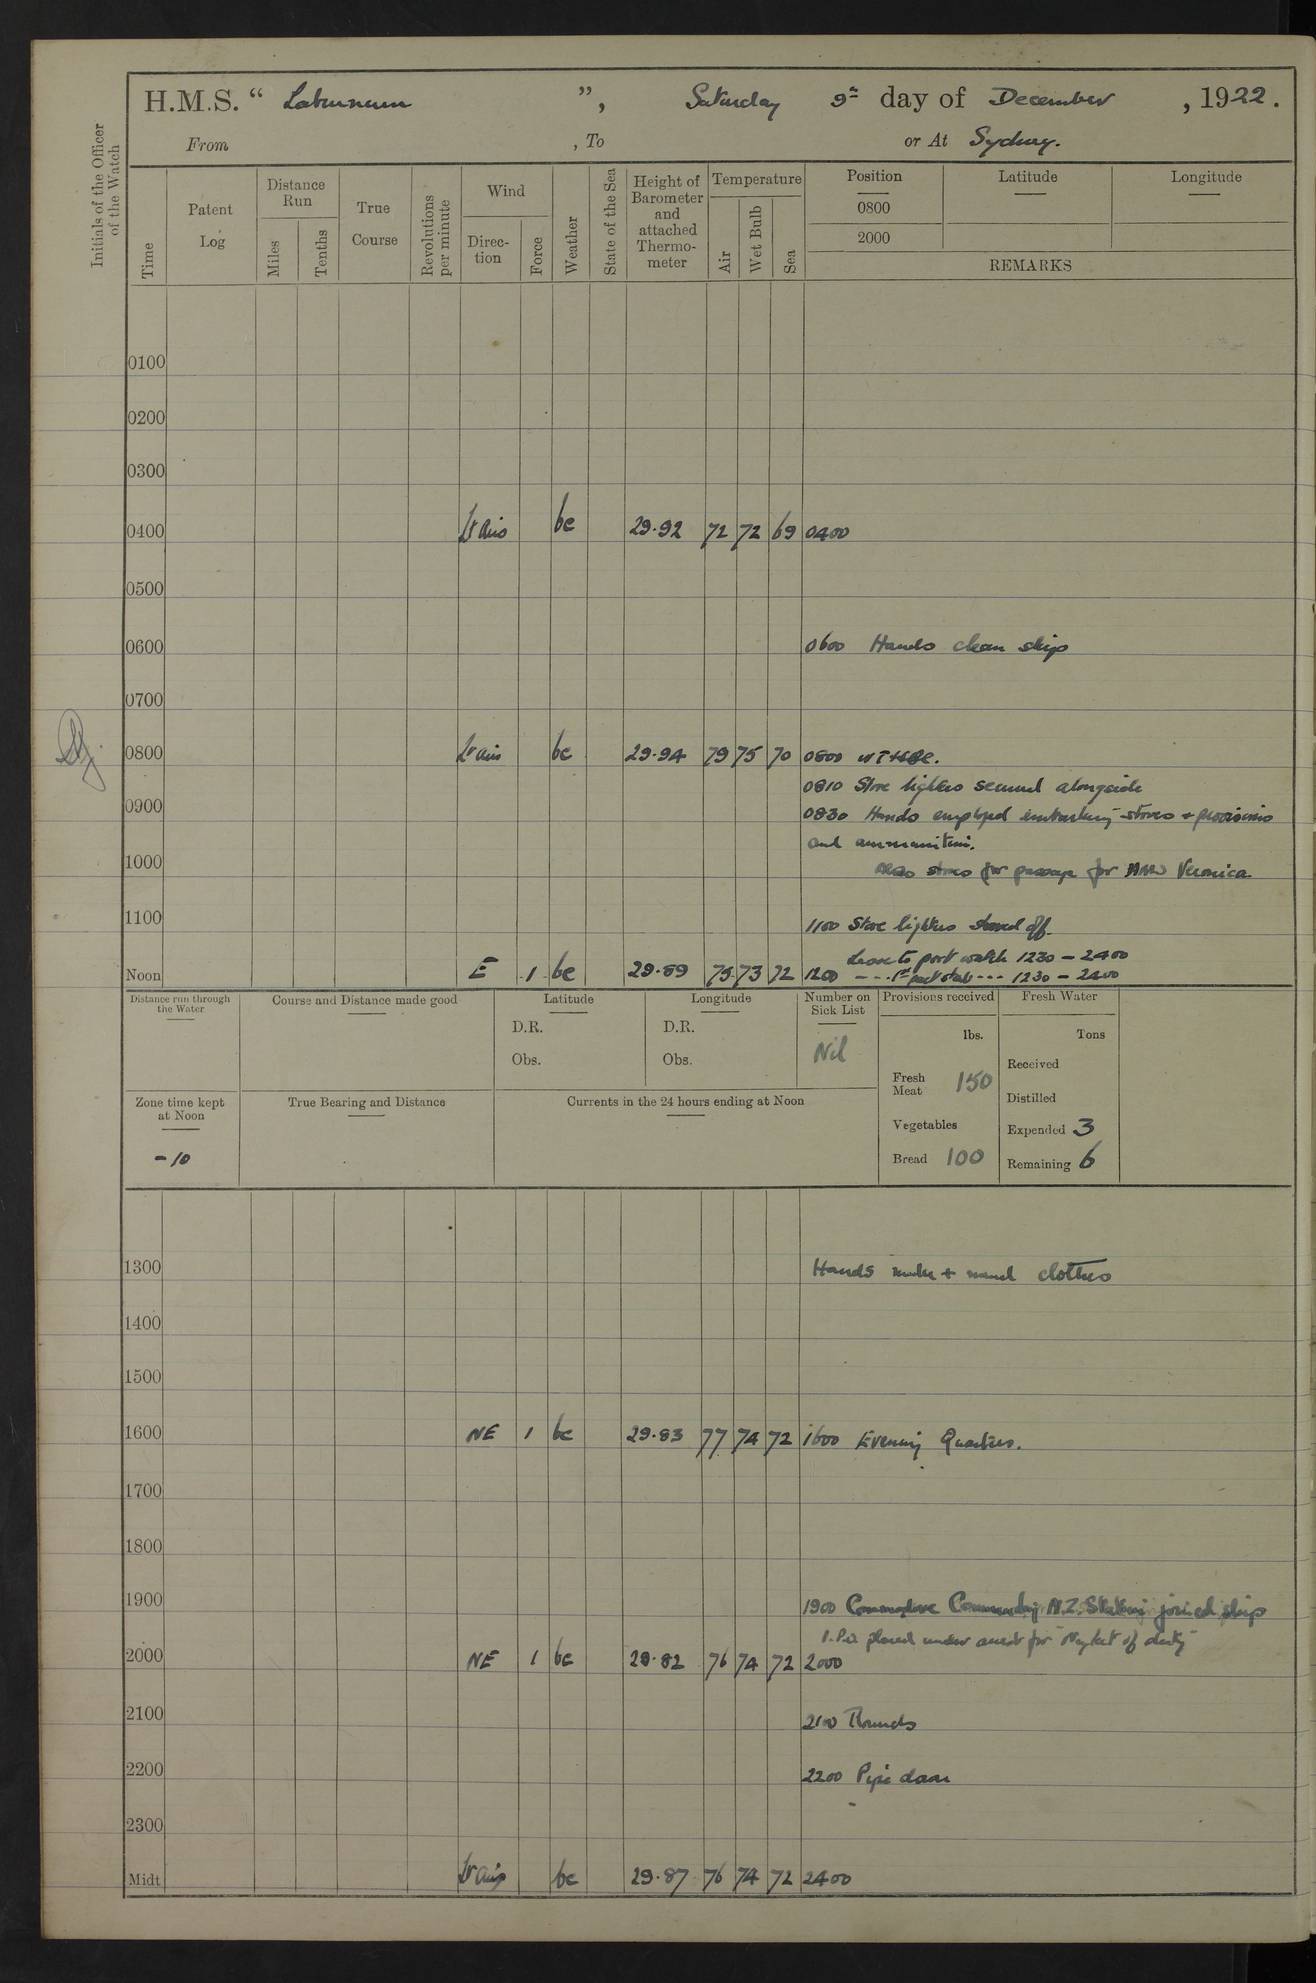 H.M.S. “ Laburnum ”, Saturday 9th day of December , 1922.
From , To or At Sydney.
Initials of the Officer of the Watch
Time
Patent Log
Distance Run
Miles
Tenths
True Course
Revolutions per minute
Wind
Direc-tion
Force
Weather
State of the Sea
Height of Barometer and attached Thermo-meter
Temperature
Air
Wet Bulb
Sea
Position
0800
2000
Latitude
Longitude
REMARKS
0100
0200
0300
0400 Lt airs bc 29.92 72 72 69 0400
0500
0600 0600 Hands clean ship
0700
0800 Lt airs bc 29.94 79 75 70 0800
0810 Store lighters secured alongside
0900 0830 Hands employed embarking stores + provisions
and ammunition.
1000 Also stores for passage for HMS Veronica
1100 1100 Store lighters shoved off
Leave to port watch 1230 – 2400
Noon E 1 bc 29.89 75 73 72 1200 – – – 1st part stab – – – 1230 – 2400
Distance run through the Water
Course and Distance made good
Latitude
D.R.
Obs.
Longitude
D.R.
Obs.
Number on Sick List
Nil
Provisions received
lbs.
Fresh Meat 150
Vegetables
Bread 100
Fresh Water
Tons
Received
Distilled
Expended 3
Remaining 6
Zone time kept at Noon
-10
True Bearing and Distance
Currents in the 24 hours ending at Noon
1300 Hands make + mend clothes
1400
1500
1600 NE 1 bc 29.83 77 74 72 1600 Evening Quarters.
1700
1800
1900 1900 Commodore Commanding N.Z. Station joined ship
placed under arrest for "Neglect of duty"
2000 NE 1 bc 29.82 76 74 72 2000
2100 2100 Rounds
2200 2200 Pipe down
2300
Midt Lt airs bc 29.87 76 74 72 2400